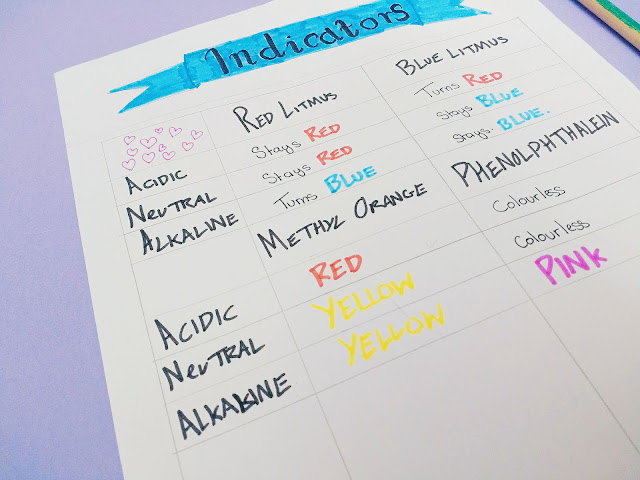 Indicators
RED LITMUS BLUE LITMUS
ACIDIC Stays RED Turns RED
NEUTRAL Stays RED Stays BLUE
ALKALINE Turns BLUE Stays BLUE.
METHYL ORANGE PHENOLPHTHALEIN
ACIDIC RED Colourless
NEUTRAL YELLOW Colourless
ALKALINE YELLOW PINK